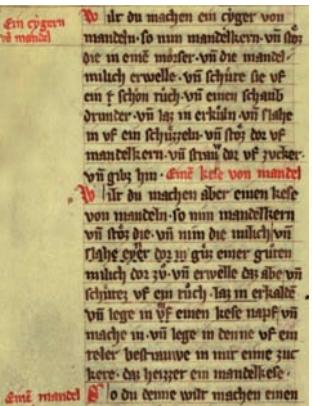 Ein cygern
vō mandel
Wilt du machen ein cyger von
mandeln· so nim mandelkern· vn̄ stoͤz
die in eime morser· vn̄ die mandel-
milich erwelle· vn̄ schüre sie vf
ein schon tuͦch· vn̄ einen schaub
drunder· vn̄ laz in erkuͤln vn̄ slahe
in vf ein schuͤzzeln· vn̄ stoͤz dor vf
mandelkern· vn̄ strau dor vf zucker·
vn̄ gibz hin· Einē kese von mandel
Wilt du machen aber einen kese
von mandeln· so nim mandelkern
vn̄ stoͤz die· vn̄ nim die milich vn̄
slahe eyer dor zuͦ guͤz einer guͤten
milich dor zuͦ· vn̄ erwelle daz abe vn̄
schürez vf ein tuͦch· laz in erkaldē
vn̄ lege in vf einen kese napf vn̄
mache in· vn̄ lege in denne vf ein
teler bestrauwe in mit eime zuc
kere· daz heizzet ein mandelkese·
Einē mandel
So du denne wilt machen einen